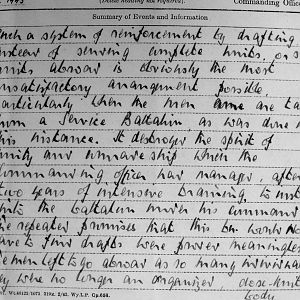 1943
(Delete heading not required).
Commanding Offic
Summary of Events and Information
such a system of reinforcement by drafting
instead of sending complete units, or s
units abroad is obviously the most
unsatisfactory arrangment possible,
particularly when the men are ta
from a Service Battalion, as was done
this instance. It destroys the spirit of
unity and comradeship when the
Commanding officer has manager, after
two years of intensive training, to
into the battalion under his command
The repeated promises that this bn. would No
have to find drafts were proved meaningles
The men left to go abroad as so many individual
They were no longer an organized, close-knit
body
Wt.
2/41. Wy.L.P. Gp.656.